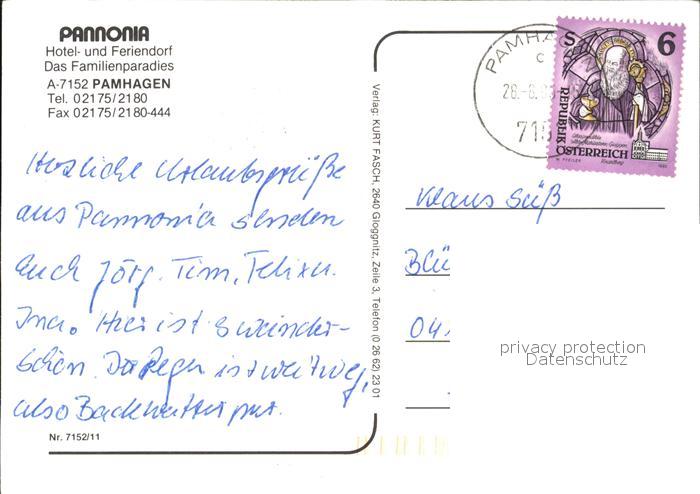 PANNONIA
Hotel- und Feriendorf
Das Familienparadies
A-7152 PAMHAGEN
Tel. 02175/2180
Fax 02175/2180-444
Herzliche Urlaubsgrüße
aus Pannonia senden
Euch Jörg, Tim, Felix u.
Ina. Hier ist es wunder-
schön. Der Regen ist weit weg,
also Badewetter pur.
Nr. 7152/11
Verlag: KURT FASCH, 2640 Gloggnitz, Zeile 3, Telefon (0 26 62) 23 01
PAMHA
c
715
S 6
REPUBLIK
ÖSTERREICH
Klaus Süß
Blü
04
privacy protection
Datenschutz